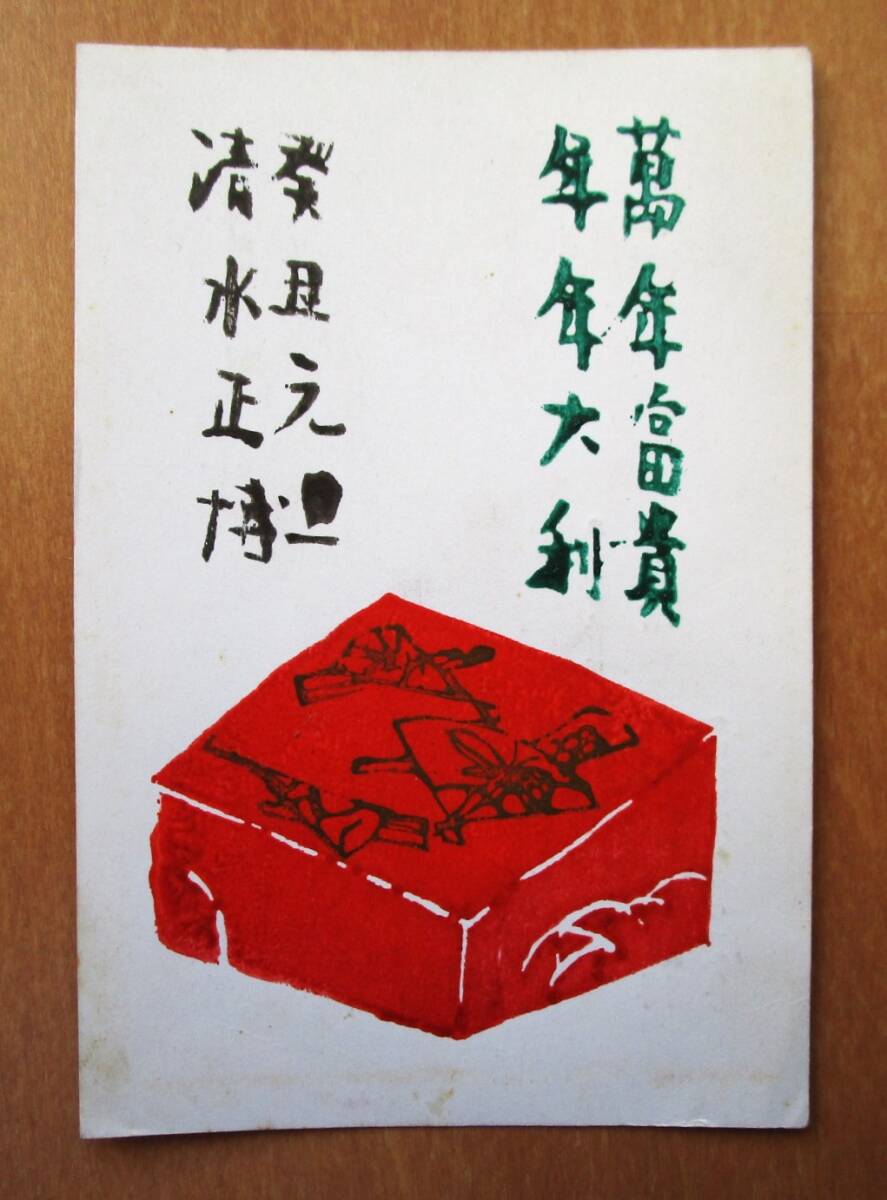 萬年富貴
年年大利
癸丑元旦
清水正博